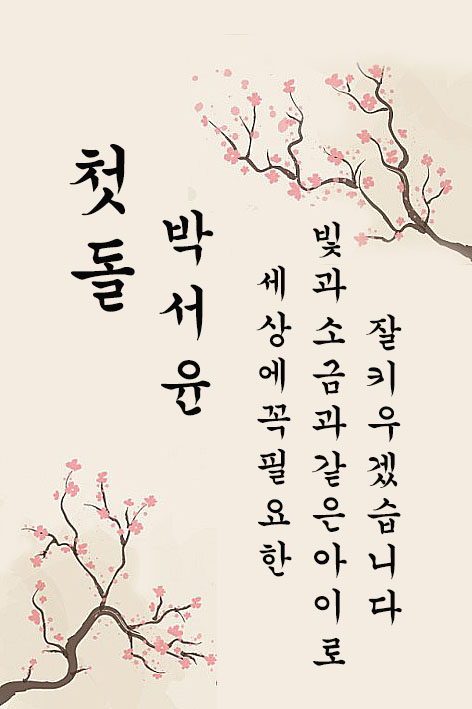 첫돌
박서윤
세상에꼭필요한
빛과소금과같은아이로
잘키우겠습니다